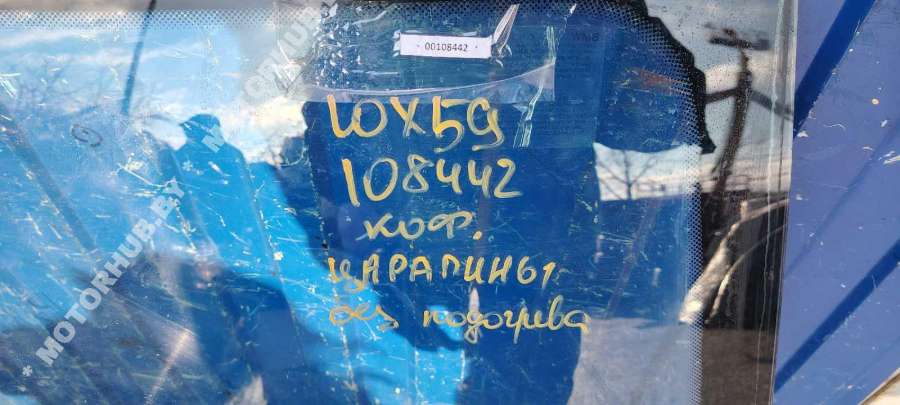 00108442
WX59
108442
коф.
ЦАРАПИНЫ
без подогрева
* MOTORHUB.BY *
* MOTORHUB.BY